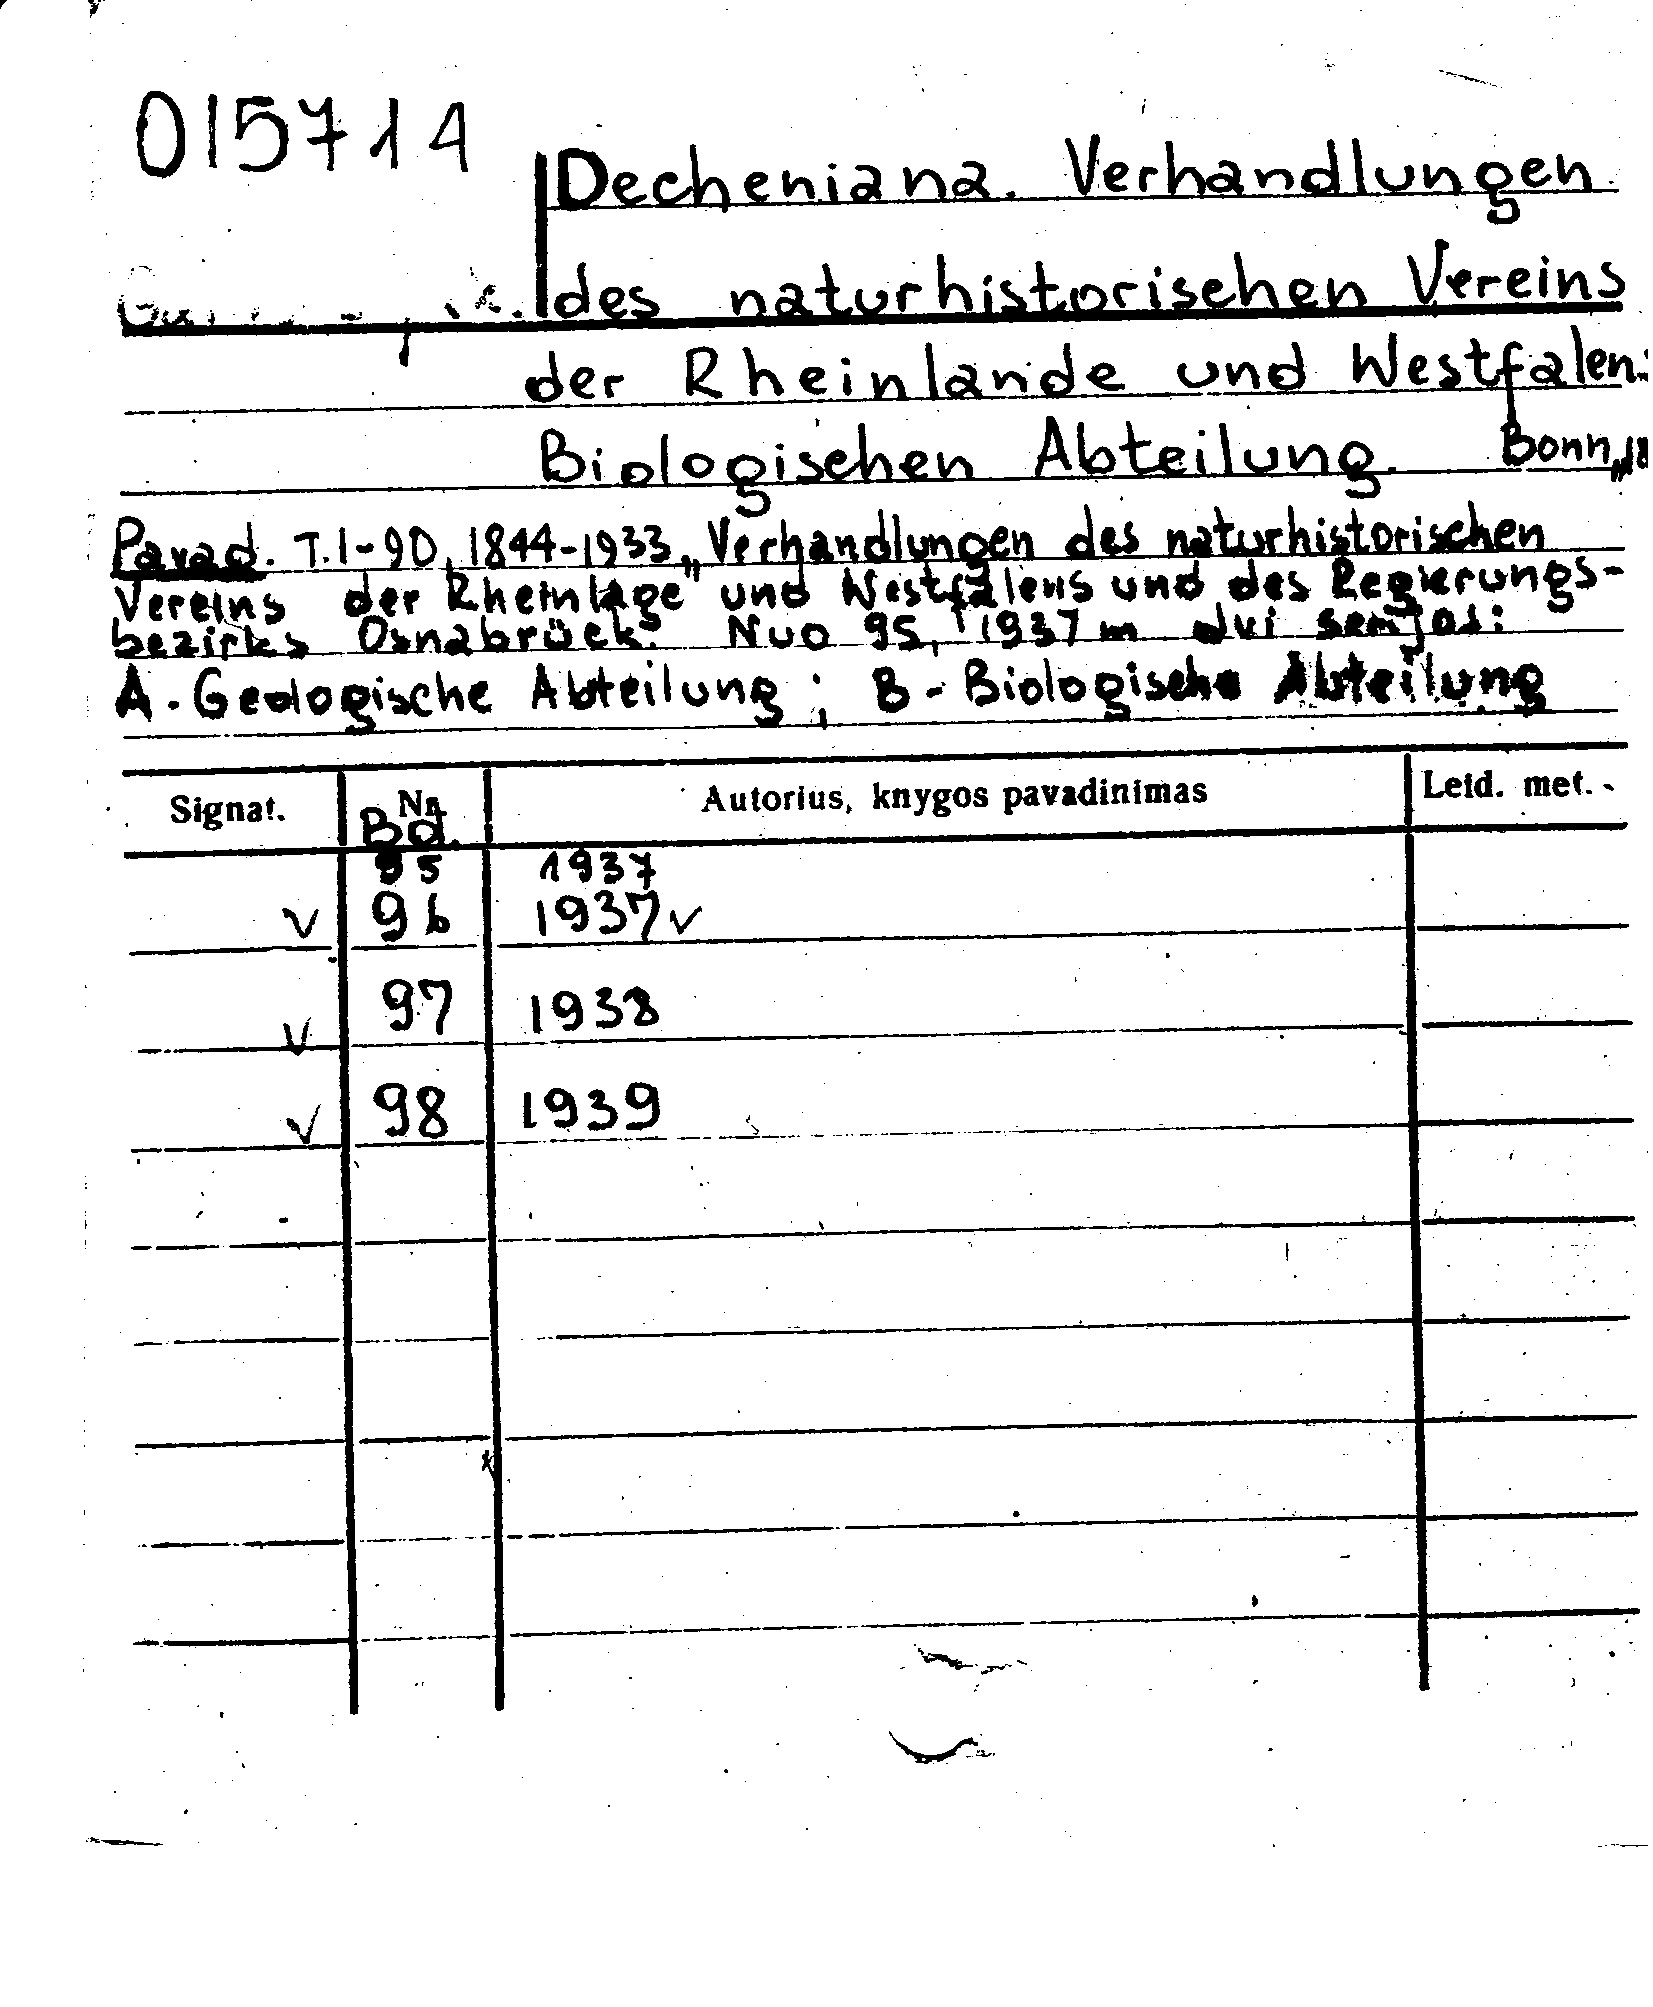 015714
Decheniana. Verhandlungen
des naturhistorischen Vereins
der Rheinlande und Westfalen:
Biologischen Abteilung. Bonn, 18
Pavad. T.1-90, 1844-1933 „Verhandlungen des naturhistorischen
Vereins der Rheinlage" und Westfalens und des Regierungs-
bezirks Osnabrück. Nuo 95, 1937 m dvi serijos:
A. Geologische Abteilung; B - Biologische Abteilung
Signat. Nr. Autorius, knygos pavadinimas Leid. met.
Bd.
95 1937
v 96 1937 v
v 97 1938
v 98 1939